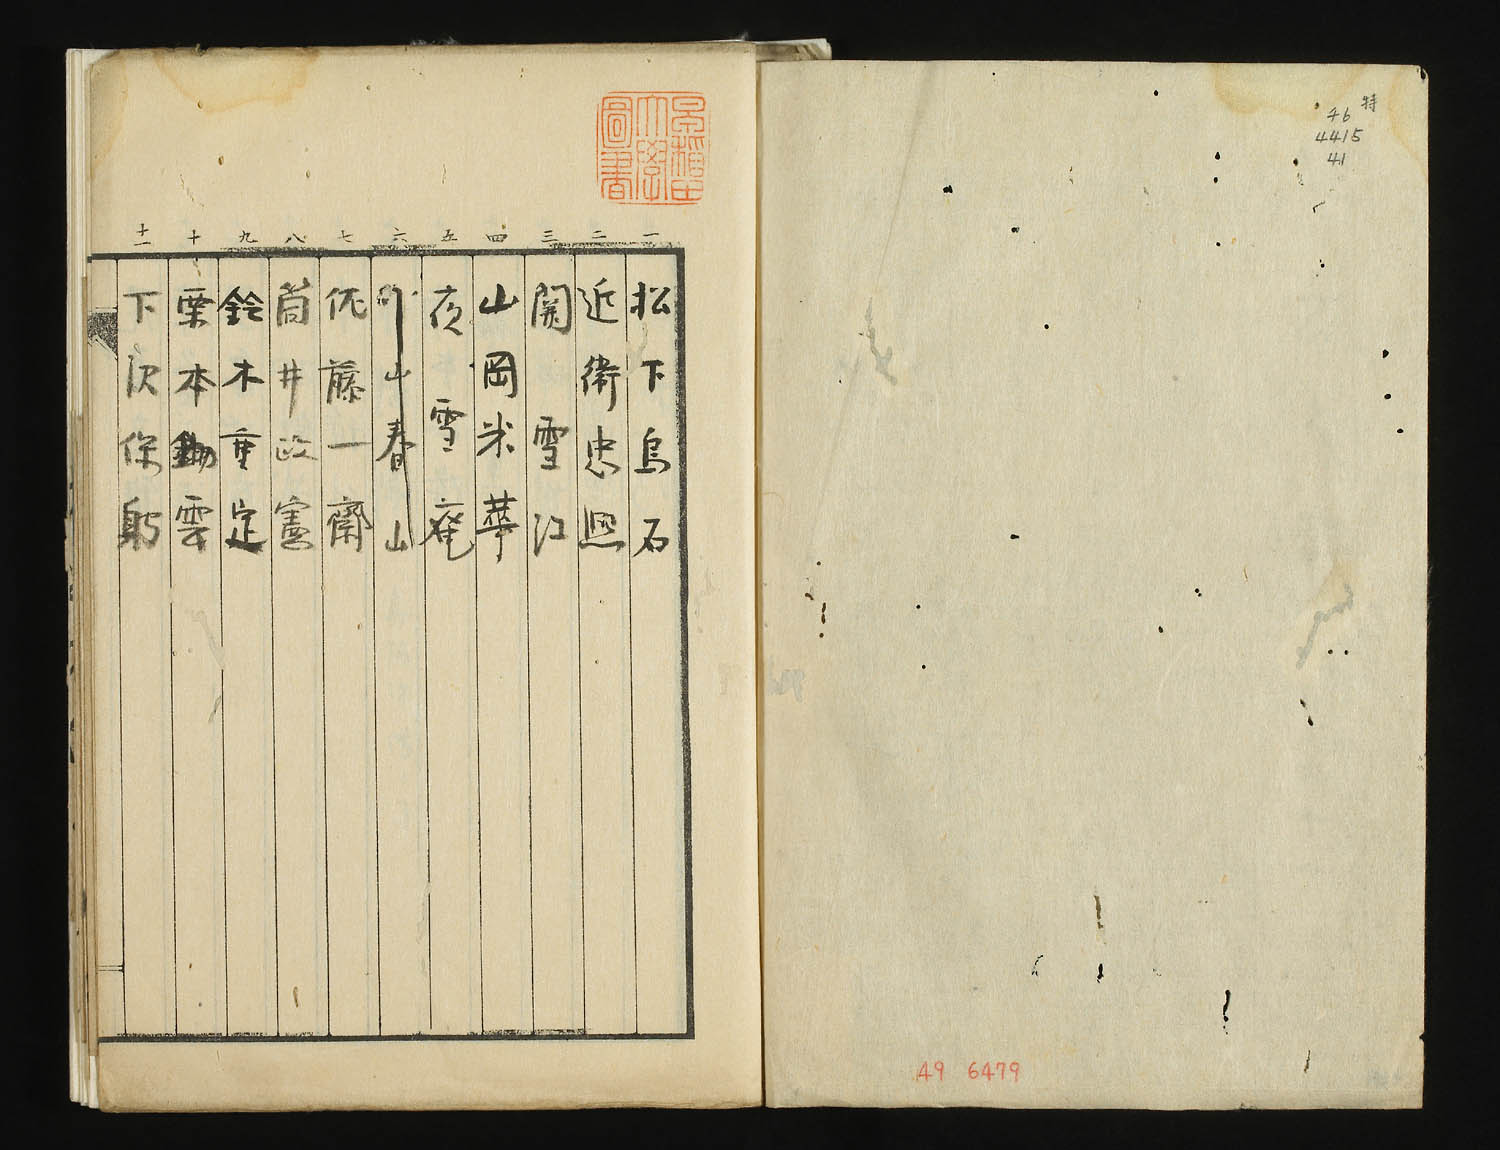 特
46
4415
41
49 6479
早稲田
大學
圖書
一 松下烏石
二 近衛忠熈
三 関雪江
四 山岡米華
五 夜雪庵
六 山春山
七 佐藤一齋
八 筒井政憲
九 鈴木重定
十 栗本鋤雲
十一 下次保躬